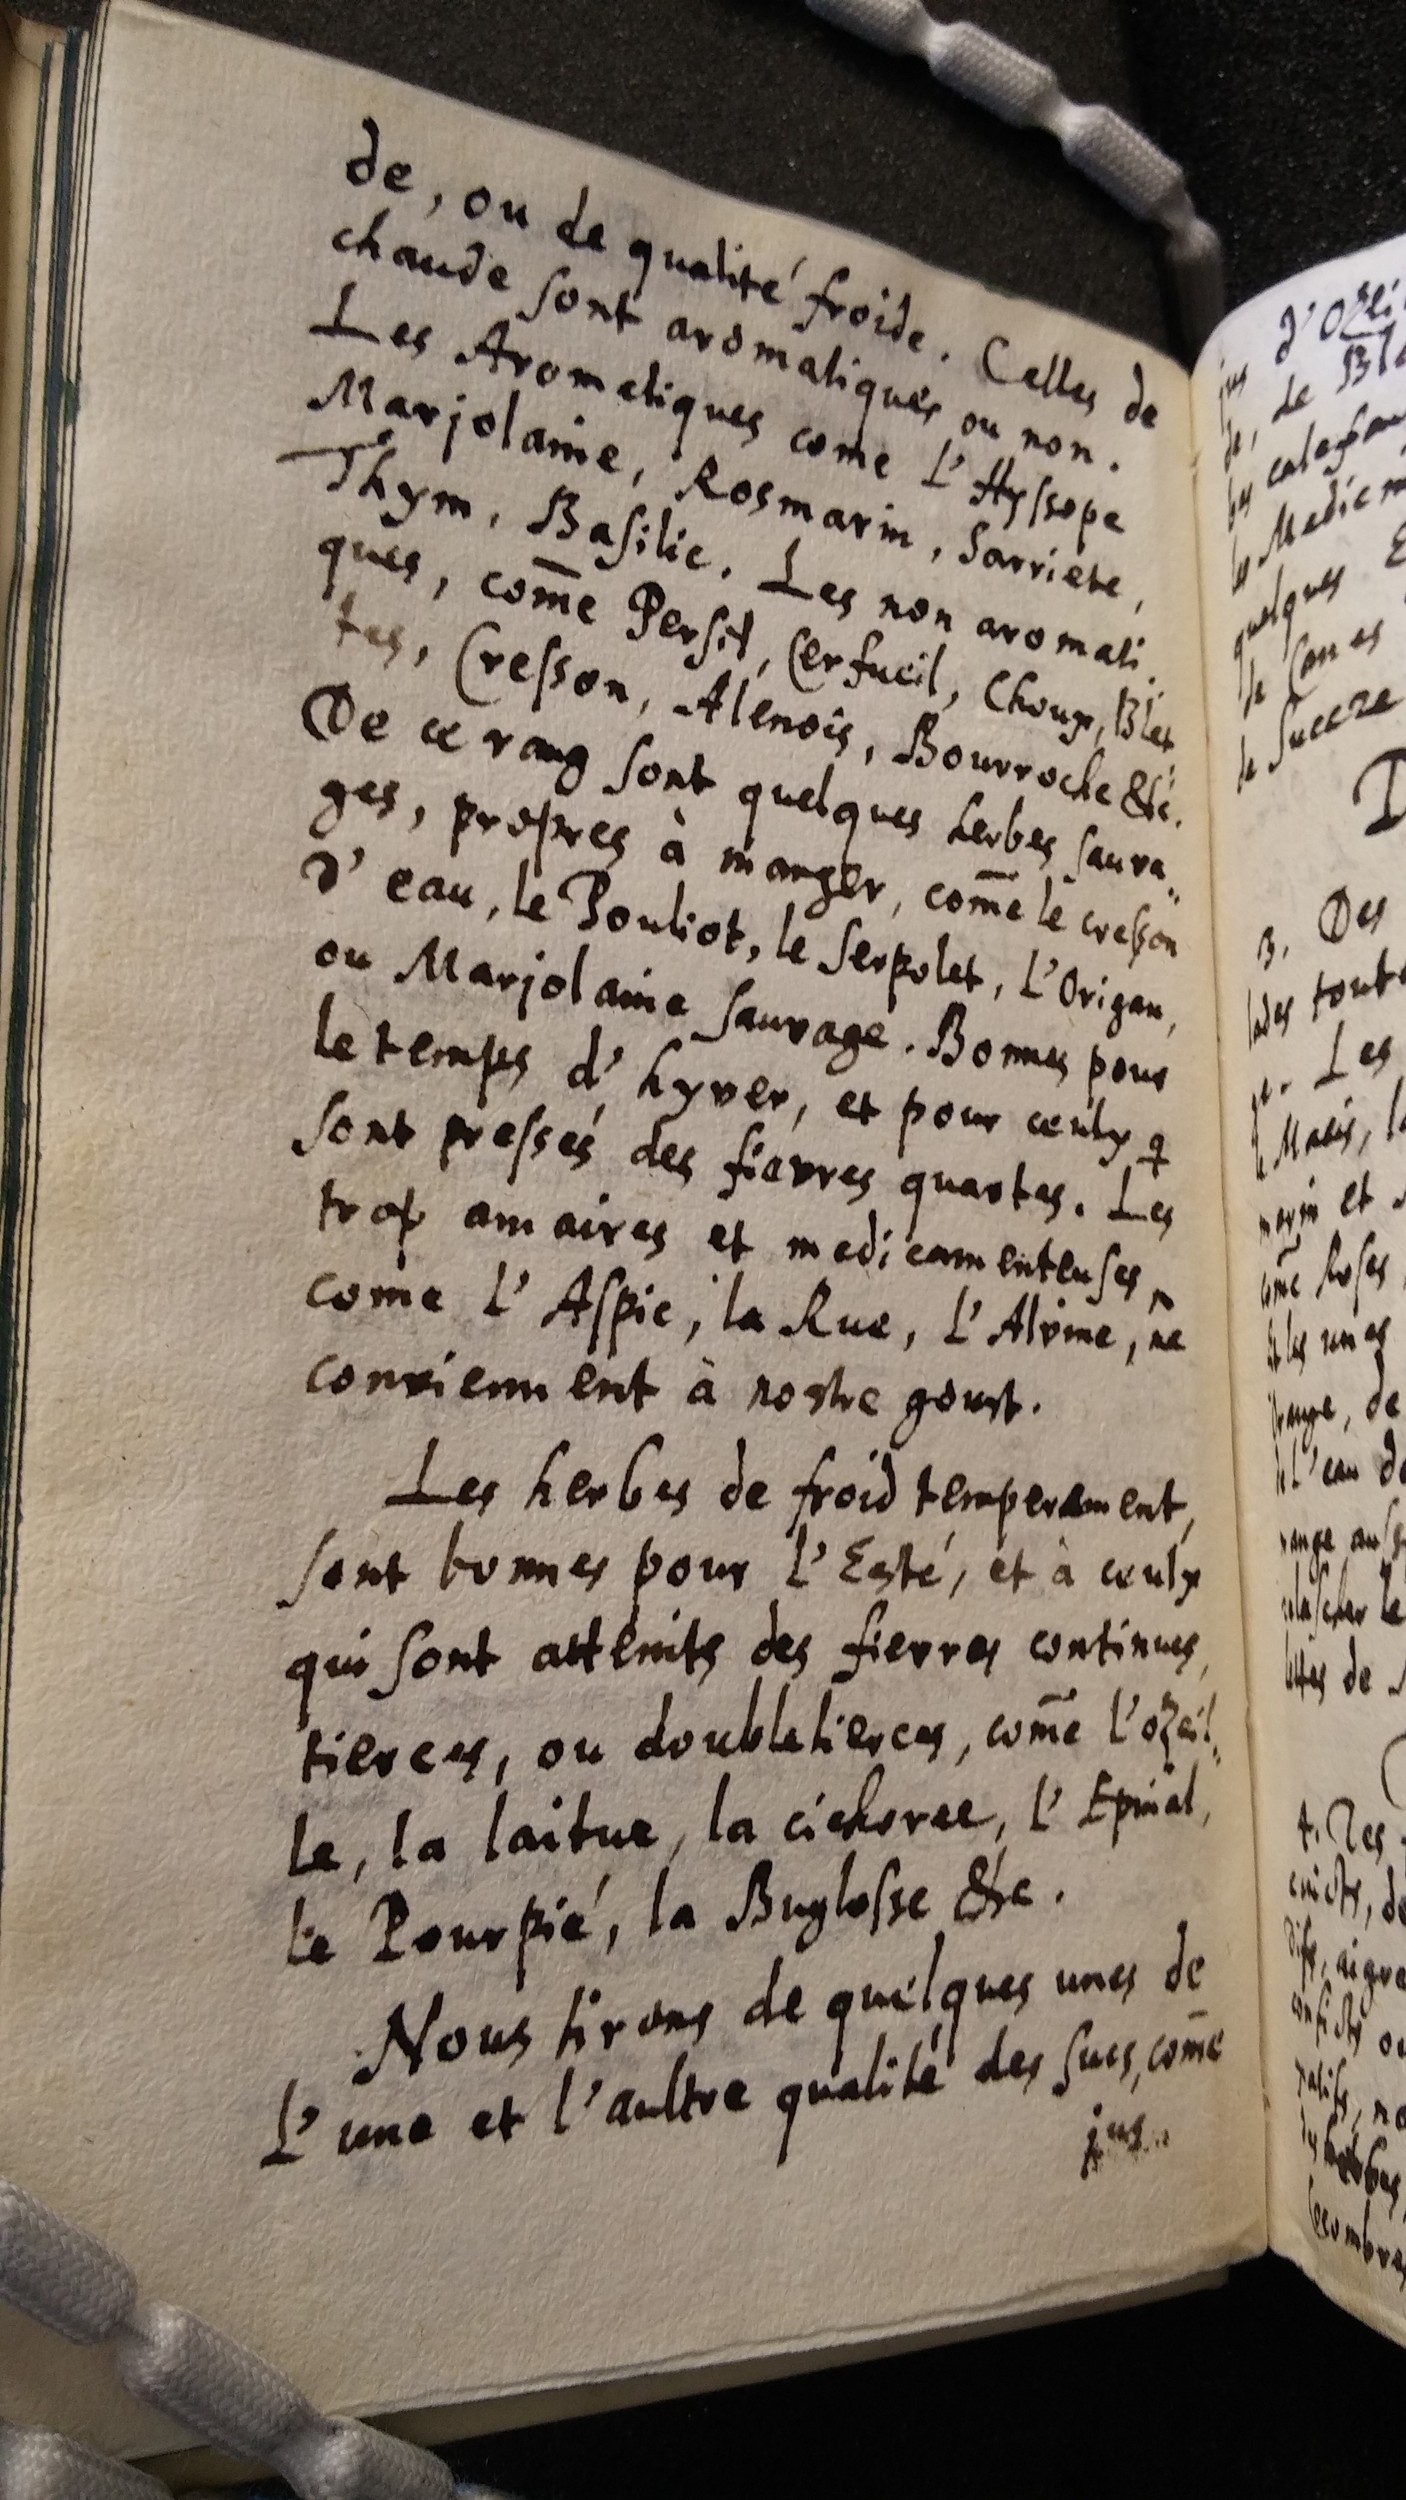 de, ou de qualité froide. Celles de
chaude sont aromatiques ou non.
Les Aromatiques come L'Hyssope
Marjolaine, Rosmarin, Sarriete,
Thym, Basilic. Les non aromati-
ques, com̄e Persil, Cerfueil, Choux, Blet
tes, Cresson, Alenois, Bourroche &c.
De ce rang sont quelques herbes sauva-
ges, propres à manger, com̄e le cresson
d'eau, le Pouliot, le Serpolet, L'Origan,
ou Marjolaine sauvage. Bonnes pour
le temps d'hyver, et pour ceulx q
sont pressés des fievres quartes. Les
trop amaires et medicamenteuses,
come L'Aspic, la Rue, L'Alvine, ne
conviennent à nostre goust.
Les herbes de froid temperament,
sont bonnes pour l'Esté, et à ceulx
qui sont atteints des fievres continues,
tierces, ou doubletierces, com̄e l'ozeil-
le, la laitue, la cichoree, l'Epinal,
le Pourpié, la Buglosse &c.
Nous tirons de quelques unes de
L'une et l'aultre qualité des sucs, com̄e
jus
d'
de, de
les Medicam
quelques
de
de Succre
3. Des
lades tout
Les
Macis, l
marin et
com̄e Roses,
les unes
de
L'eau d
le
de
4. Des
aigre
no
herbes,